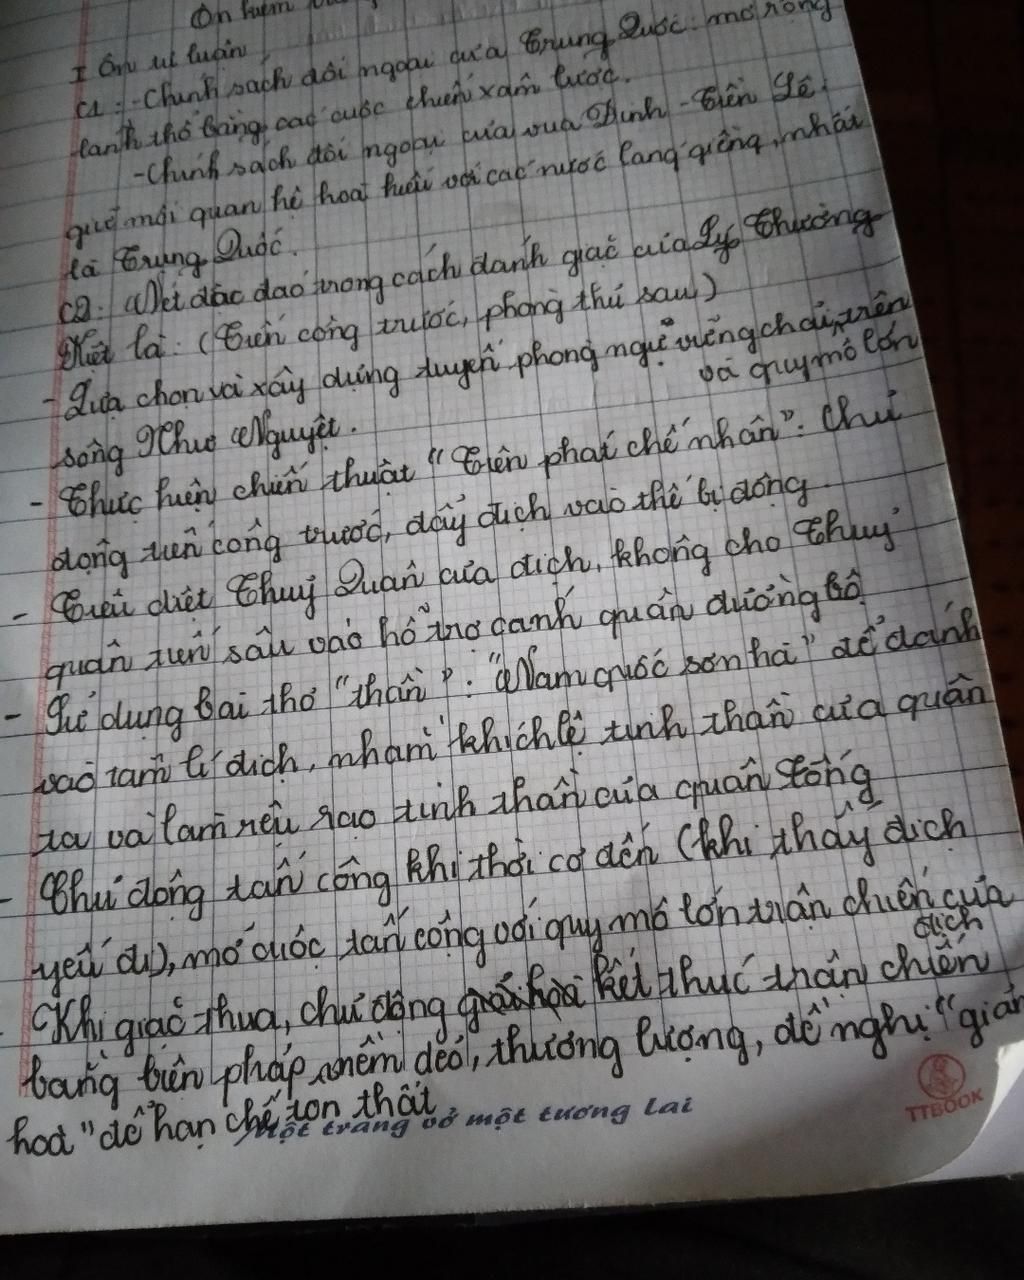 Ôn
I Ôn tự luận
C1: - Chính sách đối ngoại của Trung Quốc: mở rộng
lãnh thổ bằng các cuộc chiến xâm lược.
- Chính sách đối ngoại của vua Đinh - Tiền Lê:
giữ mối quan hệ hoà hiếu với các nước láng giềng, nhất
là Trung Quốc.
C2: Nét độc đáo trong cách đánh giặc của Lý Thường
Kiệt là: (Tiến công trước, phòng thủ sau)
- Lựa chọn và xây dựng tuyến phòng ngự vững chãi, trên
và quy mô lớn
sông Như Nguyệt.
- Thực hiện chiến thuật "Tiên phát chế nhân": Chủ
động tiến công trước, đẩy địch vào thế bị động
- Tiêu diệt Thuỷ Quân của địch, không cho Thuỷ
quân tiến sâu vào hỗ trợ cánh quân đường bộ
- Sử dụng bài thơ "thần": "Nam quốc sơn hà" để đánh
vào tâm lí địch, nhằm khích lệ tinh thần của quân
ta và làm rệu rạo tinh thần của quân Tống
- Chủ động tấn công khi thời cơ đến (khi thấy địch
yếu đi), mở cuộc tấn công với quy mô lớn trận chiến của
địch
- Khi giặc thua, chủ động kết thúc thận chiến
bằng biện pháp mềm dẻo, thương lượng, đề nghị "giản
hoà" để hạn chế tổn thất
Một trang vở một tương lai
TTBOOK